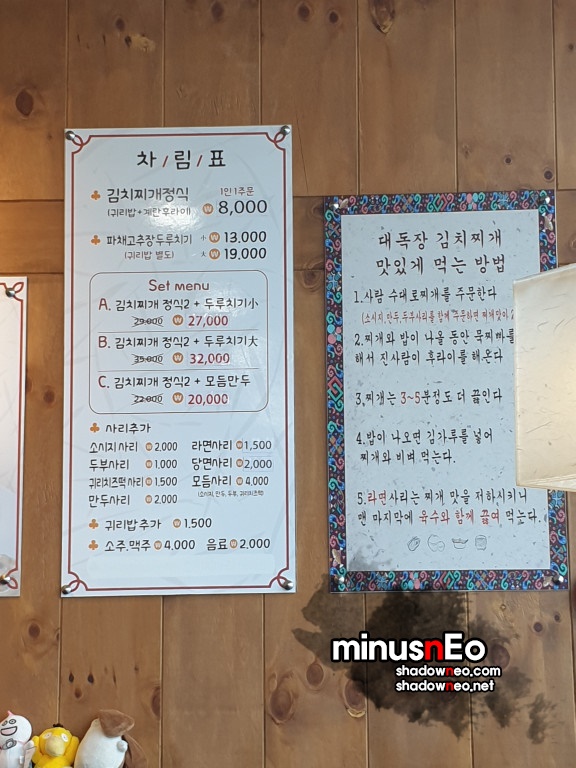 차/림/표
김치찌개정식 1인1주문
(귀리밥+계란후라이) ₩ 8,000
파채고추장두루치기 小 ₩ 13,000
(귀리밥 별도) 大 ₩ 19,000
Set menu
A. 김치찌개 정식2 + 두루치기小
29,000 ₩ 27,000
B. 김치찌개 정식2 + 두루치기大
35,000 ₩ 32,000
C. 김치찌개 정식2 + 모듬만두
22,000 ₩ 20,000
사리추가
소시지사리 ₩2,000 라면사리 ₩1,500
두부사리 ₩1,000 당면사리 ₩2,000
귀리치즈떡사리 ₩1,500 모듬사리 ₩4,000
만두사리 ₩2,000 (소시지, 만두, 두부, 귀리치즈떡)
귀리밥추가 ₩1,500
소주.맥주 ₩4,000 음료 ₩2,000
대독장 김치찌개
맛있게 먹는 방법
1.사람 수대로찌개를 주문한다
(소시지, 만두, 두부사리를 함께 주문하면 찌개맛이
2.찌개와 밥이 나올 동안 묵찌빠를
해서 진사람이 후라이를해온다
3.찌개는 3~5분정도 더 끓인다
4.밥이 나오면 김가루를 넣어
찌개와 비벼 먹는다.
5.라면사리는 찌개 맛을 저하시키니
맨 마지막에 육수와 함께 끓여 먹는다.
minusnEo
shadowneo.com
shadowneo.net